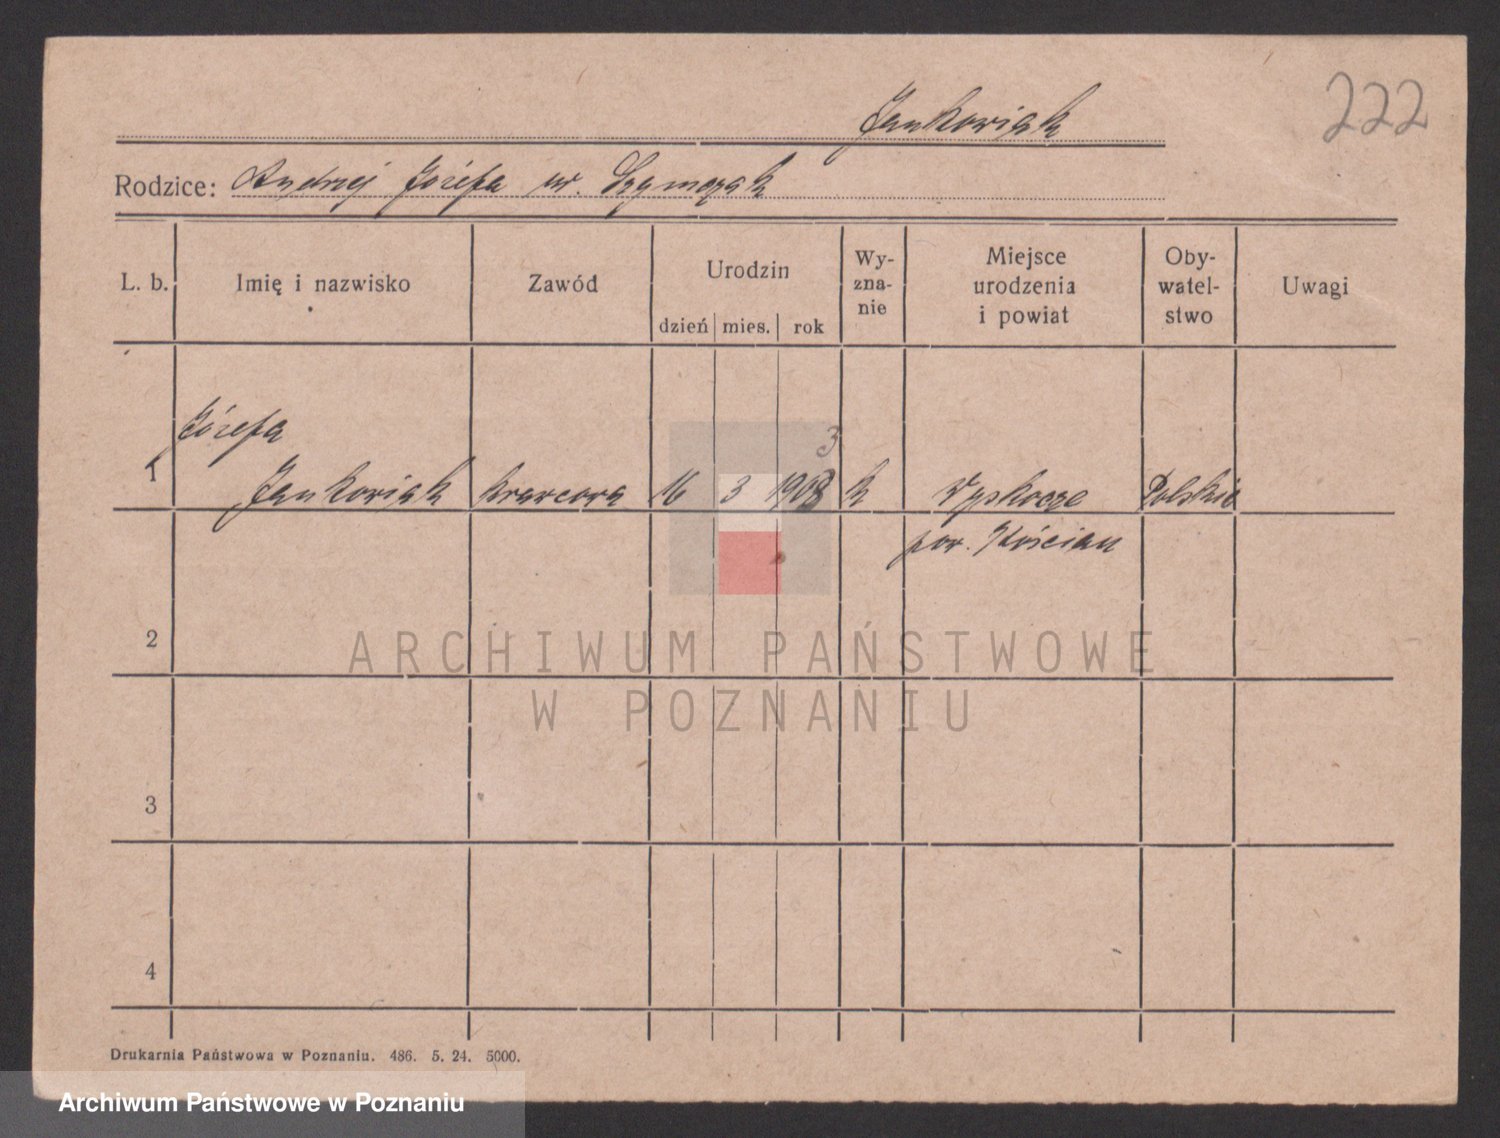 222
Jankowiak
Rodzice: Andrzej Józefa ur. Szymczak
L. b. Imię i nazwisko Zawód Urodzin Wy-zna-nie Miejsce urodzenia i powiat Oby-watel-stwo Uwagi
dzień mies. rok
Józefa
3
1 Jankowiak krawcowa 16 3 1908 k Wyskocze Polskie
pow. Kościan
2
ARCHIWUM PAŃSTWOWE
W POZNANIU
3
4
Drukarnia Państwowa w Poznaniu. 486. 5. 24. 5000.
Archiwum Państwowe w Poznaniu